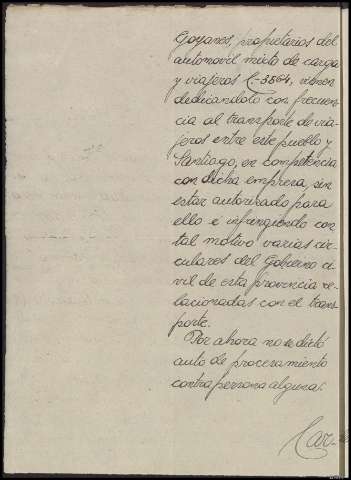 Goyanes, propietarios del
automovil mixto de carga
y viajeros C.-3864, vienen
dedicandolo con frecuen
cia al transporte de via-
jeros entre este pueblo y
Santiago, en competencia
con dicha empresa, sin
estar autorizado para
ello e infringiendo con
tal motivo varias cir-
culares del Gobierno ci-
vil de esta provincia re-
lacionadas con el trans-
porte.
Por ahora no se dictó
auto de procesamiento
contra persona alguna.
Car-